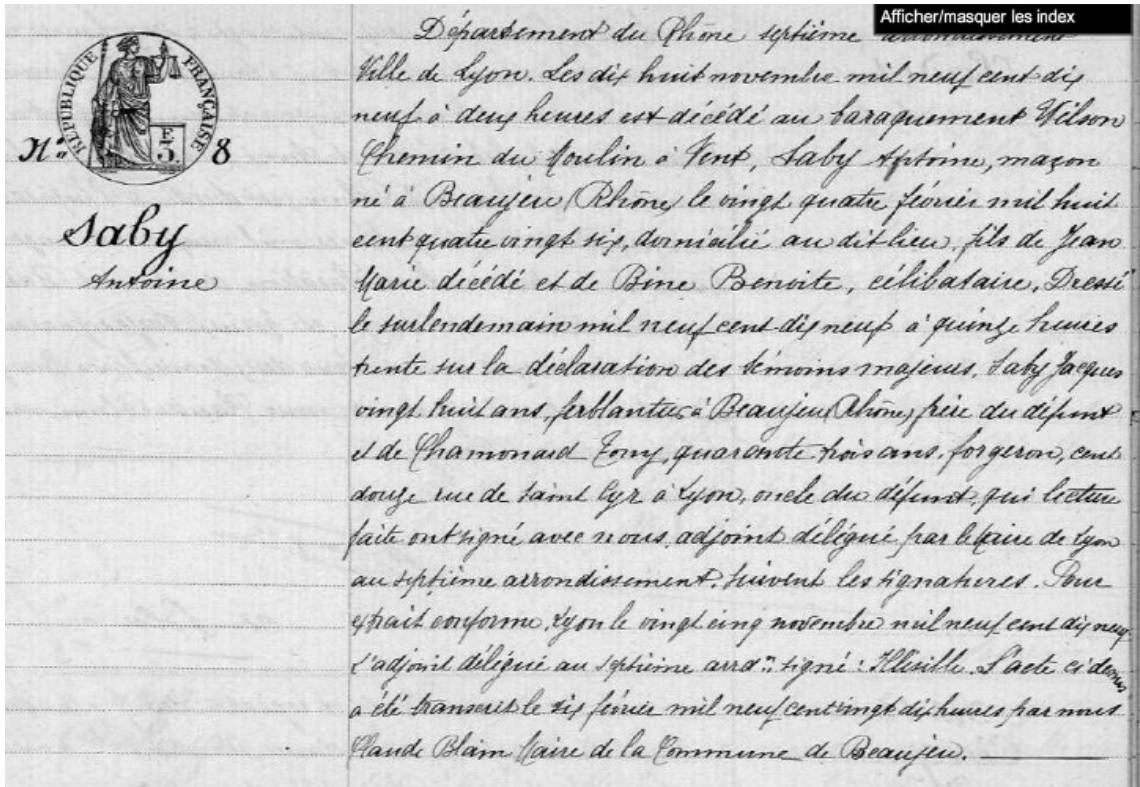 Afficher/masquer les index
RÉPUBLIQUE FRANÇAISE
F
3.
N° 8
Saby
Antoine
Département du Rhône septième arrondissement
Ville de Lyon. Les dix huit novembre mil neuf cent dix
neuf à deux heures est décédé au baraquement Wilson
Chemin du Moulin à Vent, Saby Antoine, maçon
né à Beaujeu (Rhône) le vingt quatre février mil huit
cent quatre vingt six, domicilié au dit lieu, fils de Jean
Marie décédé et de Bine Benoite, célibataire, Dressé
le surlendemain mil neuf cent dix neuf à quinze heures
trente sur la déclaration des témoins majeurs, Saby Jacques
vingt huit ans, ferblantier à Beaujeu (Rhône) frère du défunt
et de Chamonard Tony, quarante trois ans, forgeron, cent
douze rue de Saint Cyr à Lyon, oncle du défunt, qui lecture
faite ont signé avec nous, adjoint délégué par le Maire de Lyon
au septième arrondissement. Suivent les signatures. Pour
extrait conforme, Lyon le vingt cinq novembre mil neuf cent dix neuf
L'adjoint délégué au septième arrd.nt signé : Illisible. L'acte ci dessus
a été transcrit le six février mil neuf cent vingt dix heures par nous
Claude Blain Maire de la Commune de Beaujeu.